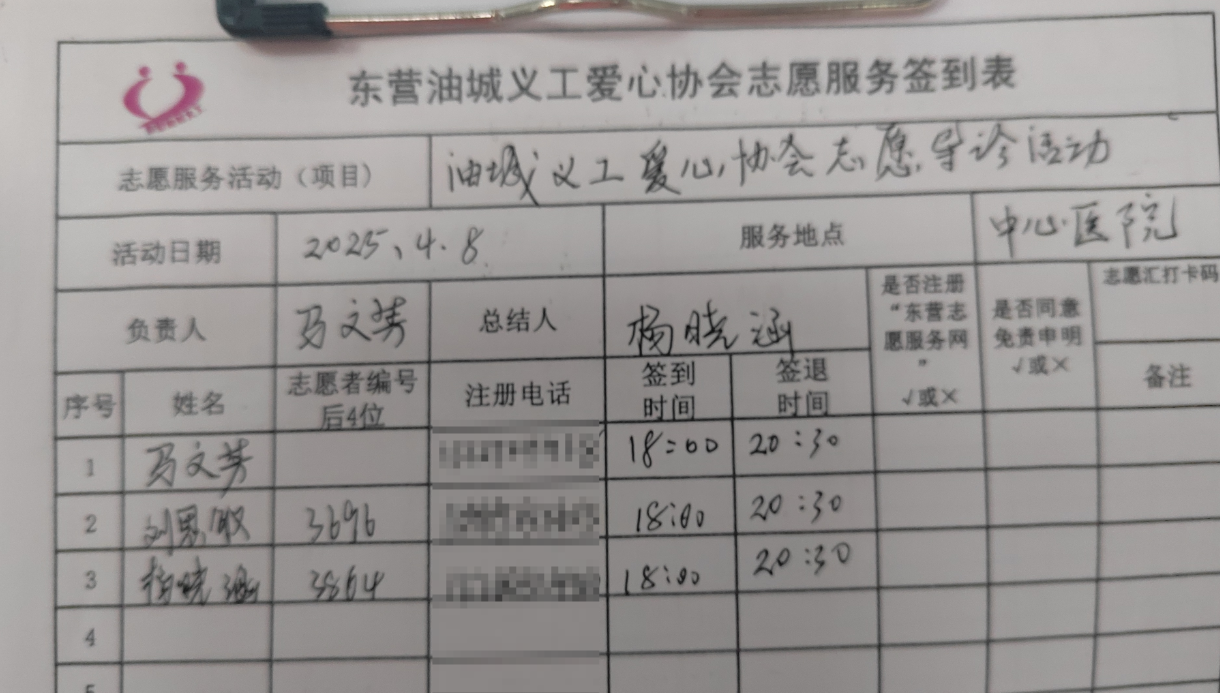 东营油城义工爱心协会志愿服务签到表
志愿服务活动（项目） 油城义工爱心协会志愿导诊活动
活动日期 2025、4.8 服务地点 中心医院
负责人 马文芳 总结人 杨晓涵 是否注册“东营志愿服务网” √或× 是否同意免责申明 √或× 志愿汇打卡码
序号 姓名 志愿者编号后4位 注册电话 签到时间 签退时间 备注
1 马文芳 18:00 20:30
2 3696 18:00 20:30
3 杨晓涵 3864 18:00 20:30
4
5